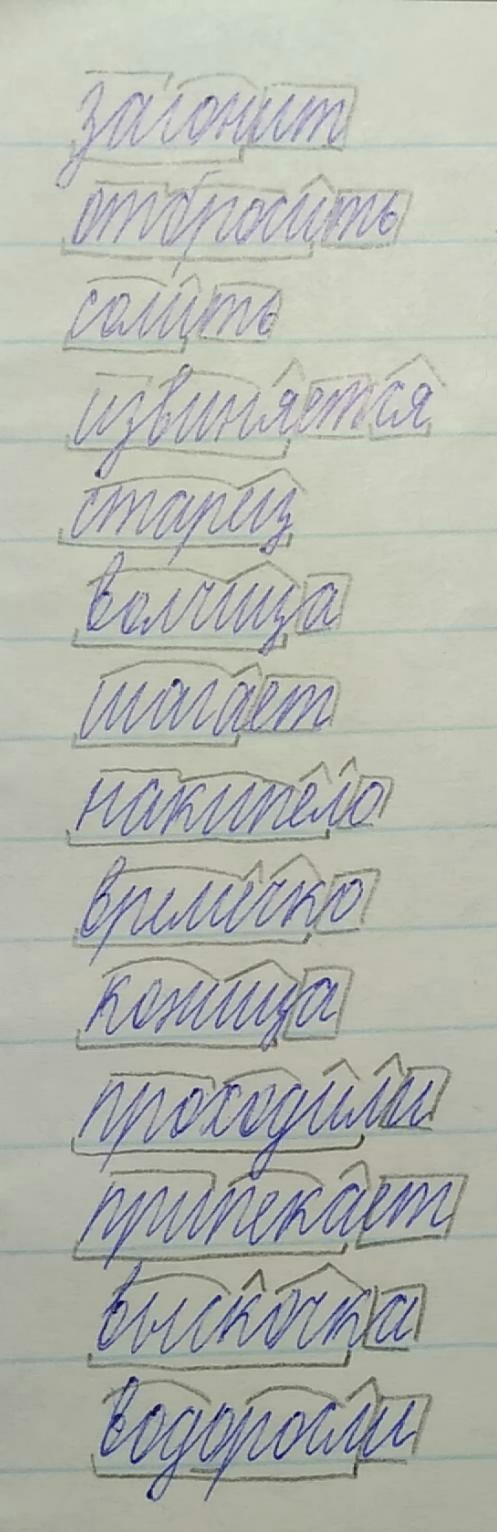 загонит
отбросить
солить
извиняется
старец
волчица
шагает
накипело
времечко
кожица
проходили
припекает
выскочка
водоросли